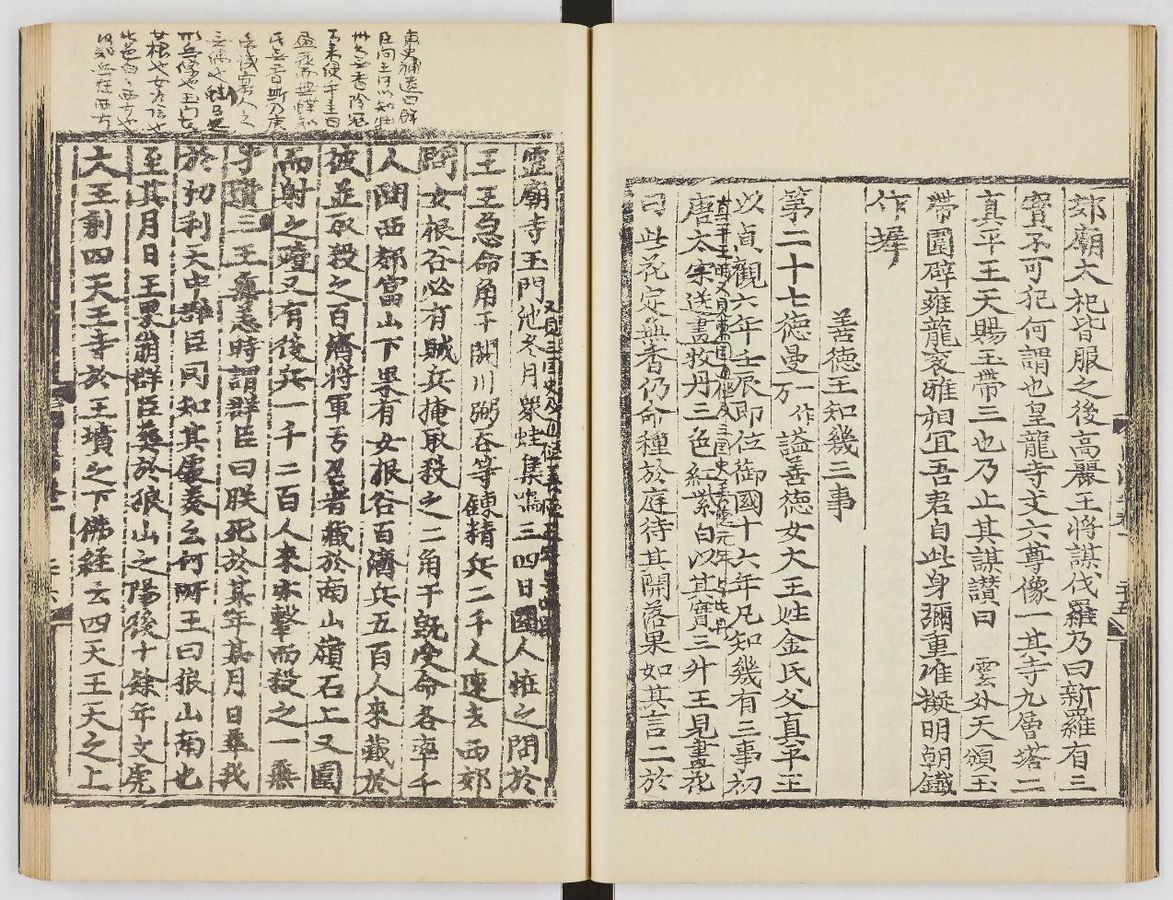 郊廟大祀皆服之後高麗王將謀伐羅乃曰新羅有三
寶不可犯何謂也皇龍寺丈六尊像一其寺九層塔二
真平王天賜玉帶三也乃止其謀讃曰 雲外天頒玉
帶圍辟雍龍衮雅相冝吾君自此身弥重准擬明朝鐵
作墀
善徳王知幾三事
第二十七徳曼一作万謚善徳女大王姓金氏父真平王
以貞觀六年壬辰即位御國十六年凡知幾有三事初
唐太宗送畫牧丹三色紅紫白以其實三升王見畫花
曰此花定無香仍命種於庭待其開落果如其言二於
靈廟寺玉門池冬月衆蛙集鳴三四日國人恠之問於
王王急命角干閼川弼呑等鍊精兵二千人速去西郊
問女根谷必有賊兵掩取殺之二角干旣受命各率千
人問西郊富山下果有女根谷百濟兵五百人來藏於
彼並取殺之百濟将軍亐召者藏於南山嶺石上又圍
而射之殪又有後兵一千二百人來亦擊而殺之一無
孑遺三王無恙時謂群臣曰朕死於某年某月日葬我
於忉利天中群臣罔知其處奏云何所王曰狼山南也
至其月日王果崩群臣葬於狼山之陽後十餘年文虎
大王剏四天王寺於王墳之下佛経云四天王天之上